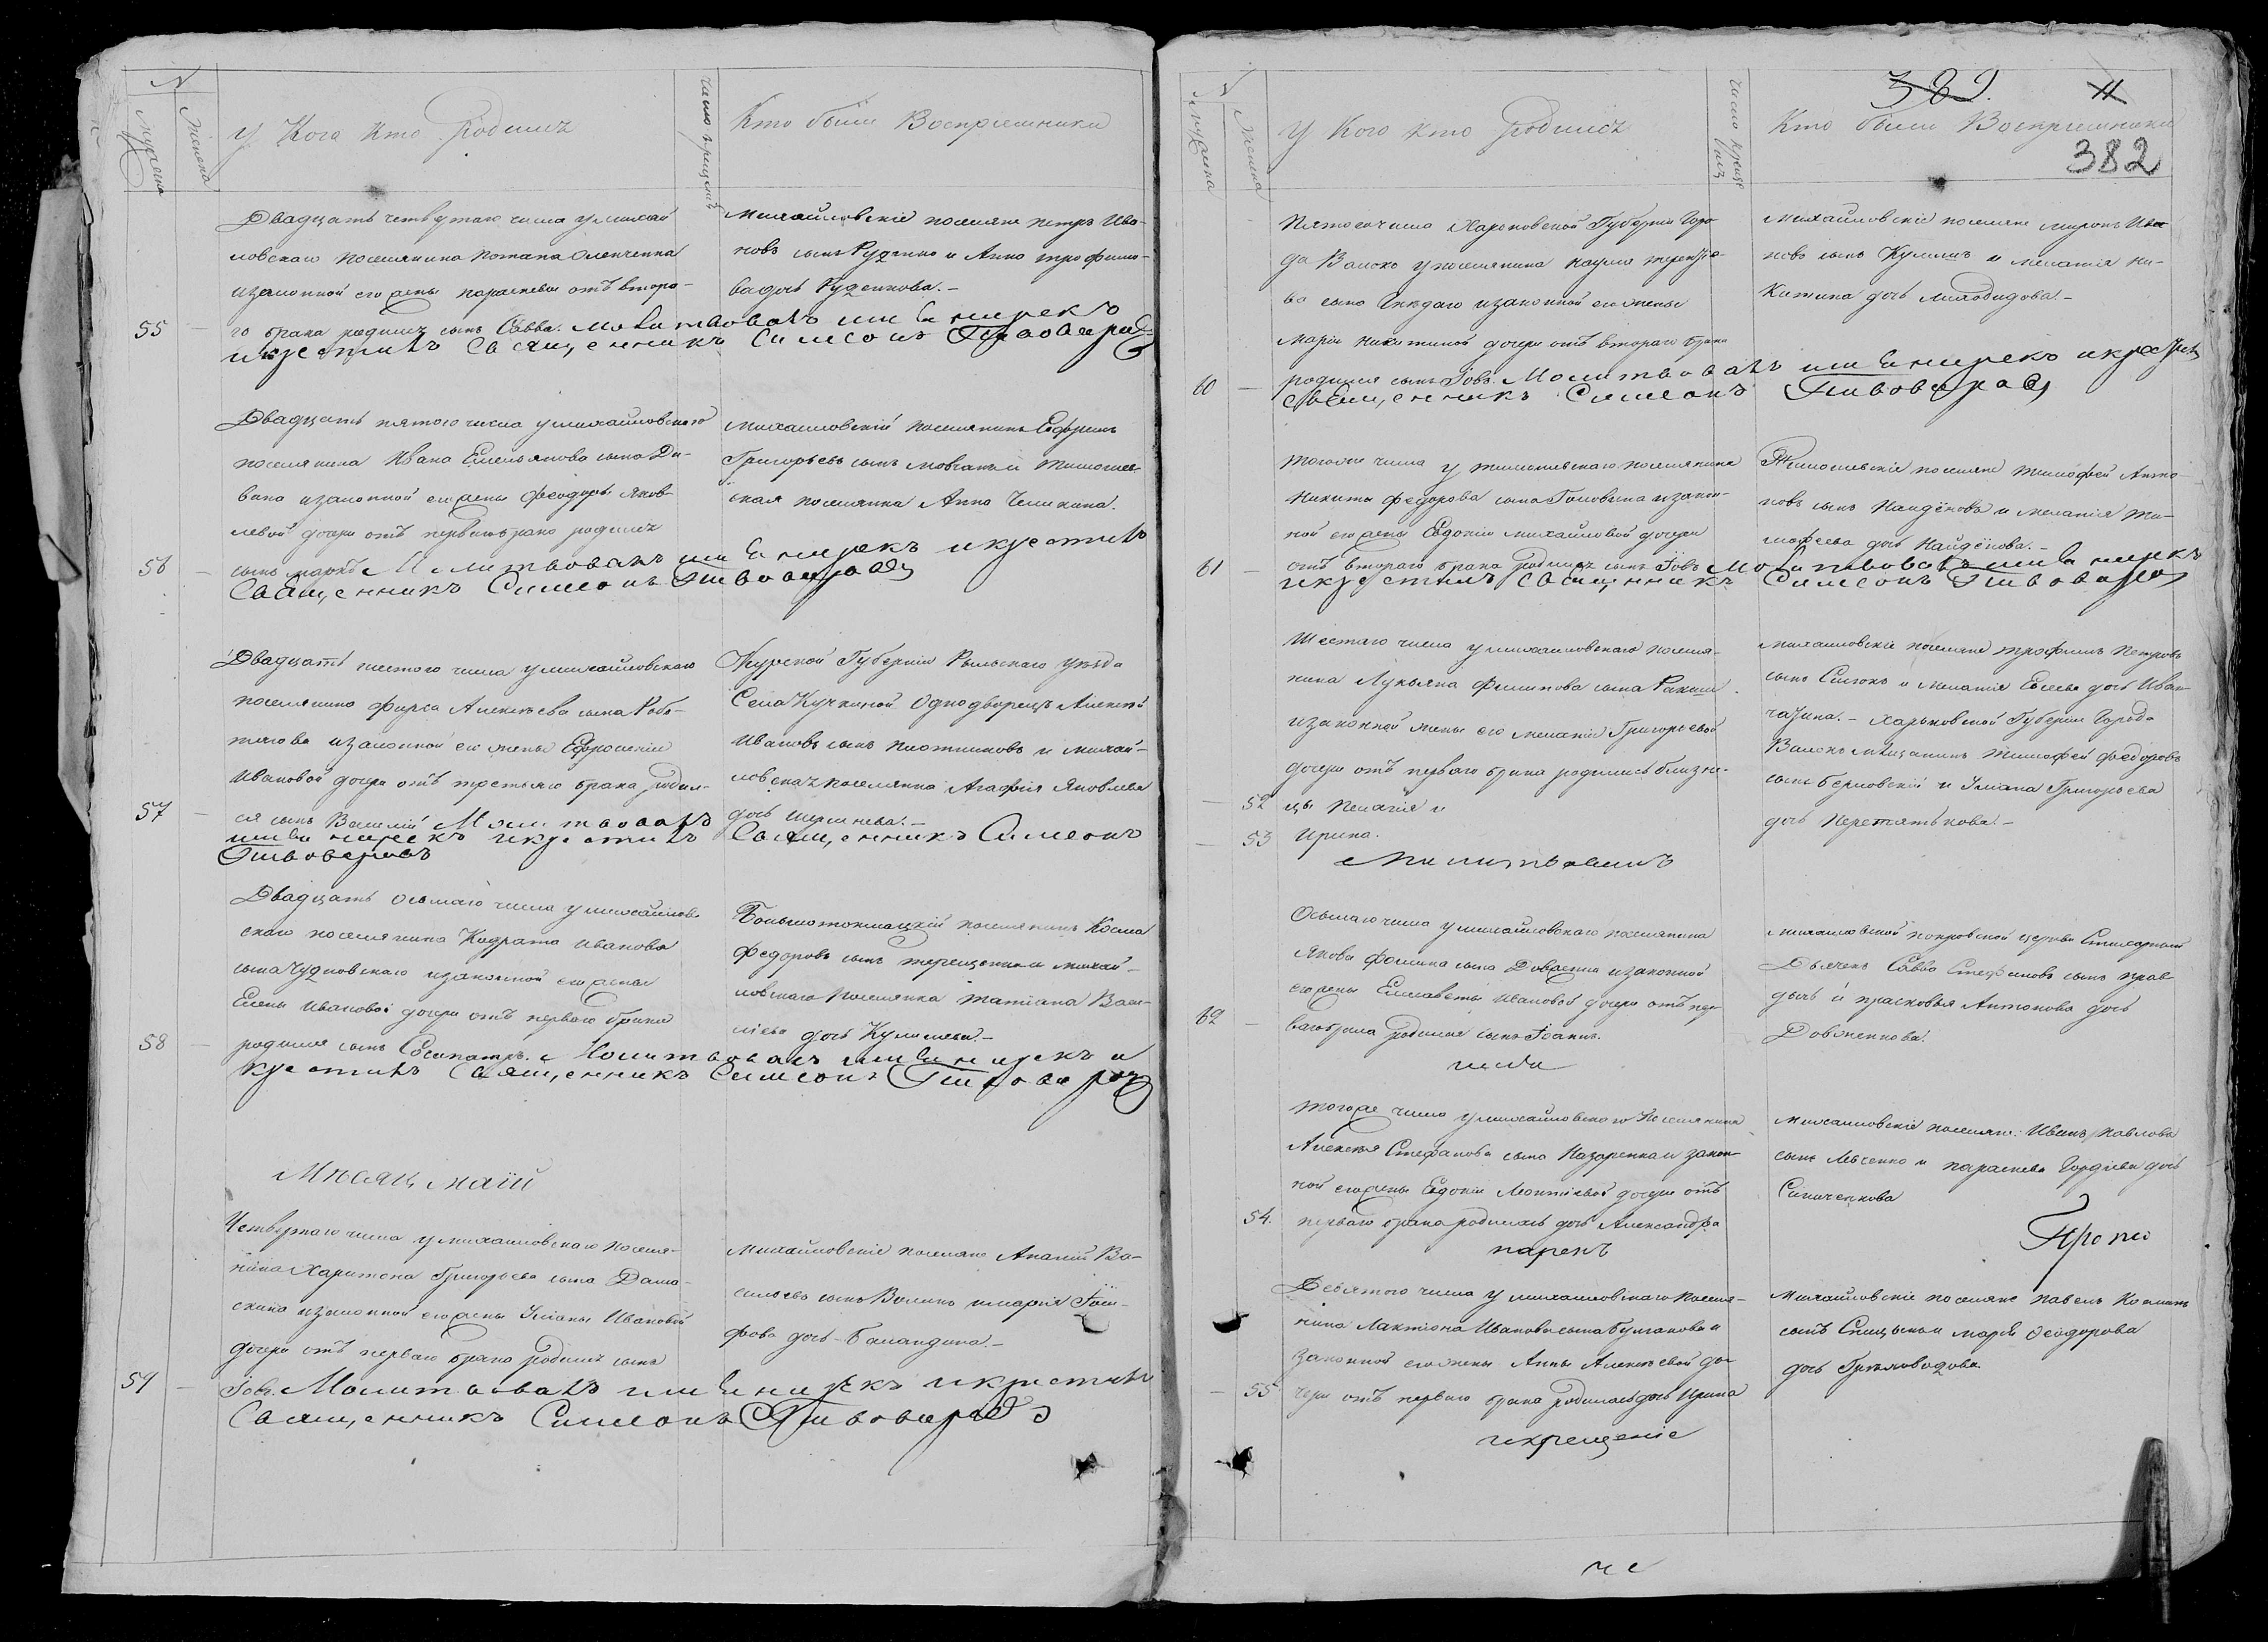 N
Мужеска
Женска
У Кого Кто Родился
число крещенія
Кто были Восприемники
Двадцать четвертаго числа у михай
ловскаго поселянина Потапа Оленченка
изаконной его жены параскевы отъ второ-
го брака родился сынъ Савва. Молитвовалъ имя нарекъ
икрестилъ Священникъ Симеонъ Пивоваровъ
55
михайловскіе поселяне петръ Ива-
новъ сынъ Руденко и Анна трофимо-
ва дочь Руденкова.-
Двадцать пятого числа умихайловскаго
поселянина Ивана Емельянова сына Ди-
вана изаконной его жены феодоры яков-
левой дочери отъ перваго брака родился
сынъ маркъ Молитвовалъ имя нарекъ икрестилъ
Священникъ Симеонъ Пивоваровъ
56
михайловскій поселянинъ Ефремъ
Григорьевъ сынъ мовчанъ и тимошев-
ская поселянка Анна
Двадцать шестого числа умихайловскаго
поселянина фирса Алексѣева сына Робо-
тягова изаконной его жены Ефросиніи
Ивановой дочери отъ третьяго брака родил-
ся сынъ Василій Молитвовалъ
имя нарекъ икрестилъ Священникъ Симеонъ
Пивоваровъ
57
Курской Губерніи Рыльскаго уѣзда
Села Кучкиной Однодворецъ Алексѣй
Ивановъ сынъ плотниковъ и михай-
ловская поселянка Агафія Яковлева
дочь
Двадцать осьмаго числа умихайлов
скаго поселянина Кодрата Иванова
сына Чудновскаго изаконной его жены
Елены Ивановой дочери отъ перваго брака
родился сынъ Сосипатръ. Молитвовалъ имя нарекъ и
крестилъ Священникъ Симеонъ Пивоваровъ
58
Большотокмацкій поселянинъ Косма
Федоровъ сынъ терещенко и михай-
ловскаго поселянка татіана Васи-
лієва дочь Кулишева.-
Мѣсяцъ маій
Четвертаго числа умихайловскаго поселя-
нина Харитона Григорьева сына Дама-
скина изаконной его жены Уліаны Ивановой
дочери отъ перваго брака родился сынъ
Іовъ. Молитвовалъ имя нарекъ икрестилъ
Священникъ Симеонъ Пивоваровъ
59
михайловскіе поселяне Ананій Ва-
сильевъ сынъ Воликъ имарія
дочь Баландина.-
N
Мужеска
Женска
У Кого Кто Родился
число крещенія
389.
11
Кто были Восприемники
382
Пятого числа Харьковской Губерніи Горо-
да Валокъ упоселянина наума терентіе-
ва сына изаконной его жены
маріи никитиной дочери отъ втораго брака
родился сынъ Іовъ. Молитвовалъ имя нарекъ икрестилъ
Священникъ Симеонъ Пивоваровъ
60
Михайловскіе поселяне миронъ Ива
новъ сынъ Кулишъ и меланія ни-
китина дочь
тогоже числа у тимошевскаго поселянина
никиты федорова сына Головина изакон-
ной его жены Евдокіи михайловой дочери
отъ втораго брака родился сынъ Іовъ Молитвовалъ имя нарекъ
икрестилъ Священникъ Симеонъ Пивоваровъ
61
Тимошевскіе поселяне тимофей Анто-
новъ сынъ Найдёновъ и меланія ти-
мофеева дочь Найдёнова.-
Шестаго числа умихайловскаго поселя-
нина Лукьяна Филипова сына
изаконной жены его меланіи Григорьевой
дочери отъ перваго брака родились близне-
цы Пелагія и
52
53
Ирина.
Молитвовалъ
михайловскіе поселяне трофимъ петровъ
сынъ и меланія Евсеева дочь Иван
чагина.- Харьковской Губерніи Города
Валокъ мѣщанинъ тимофей феодоровъ
сынъ и Уліана Григорьева
дочь Перетятькова.-
Осьмаго числа умихайловскаго поселянина
Якова фомина сына Довженка изаконной
его жены Елисаветы Ивановой дочери отъ пер
ваго брака родился сынъ Іоаннъ.
имя
62
михайловской покровской церкви
Дьячекъ Савва Стефановъ сынъ
и прасковья Антонова дочь
Довженкова.
тогоже числа умихайловскаго поселянина
Алексѣя Стефанова сына Назаренка изакон-
ной его жены Евдокіи дочери отъ
перваго брака родилась дочь Александра
нарекъ
54.
михайловскіе поселяне: Иванъ Павловъ
сынъ Левченко и параскева Гордіева дочь
Прото
Девятого числа у михайловскаго поселя-
нина Лактіона Иванова сына Булганова и
законной его жены Анны Алексѣевой до-
чери отъ перваго брака родилась дочь Ирина
икрещеніе
55
михайловскіе поселяне павелъ Козминъ
сынъ и марія Феодорова
дочь